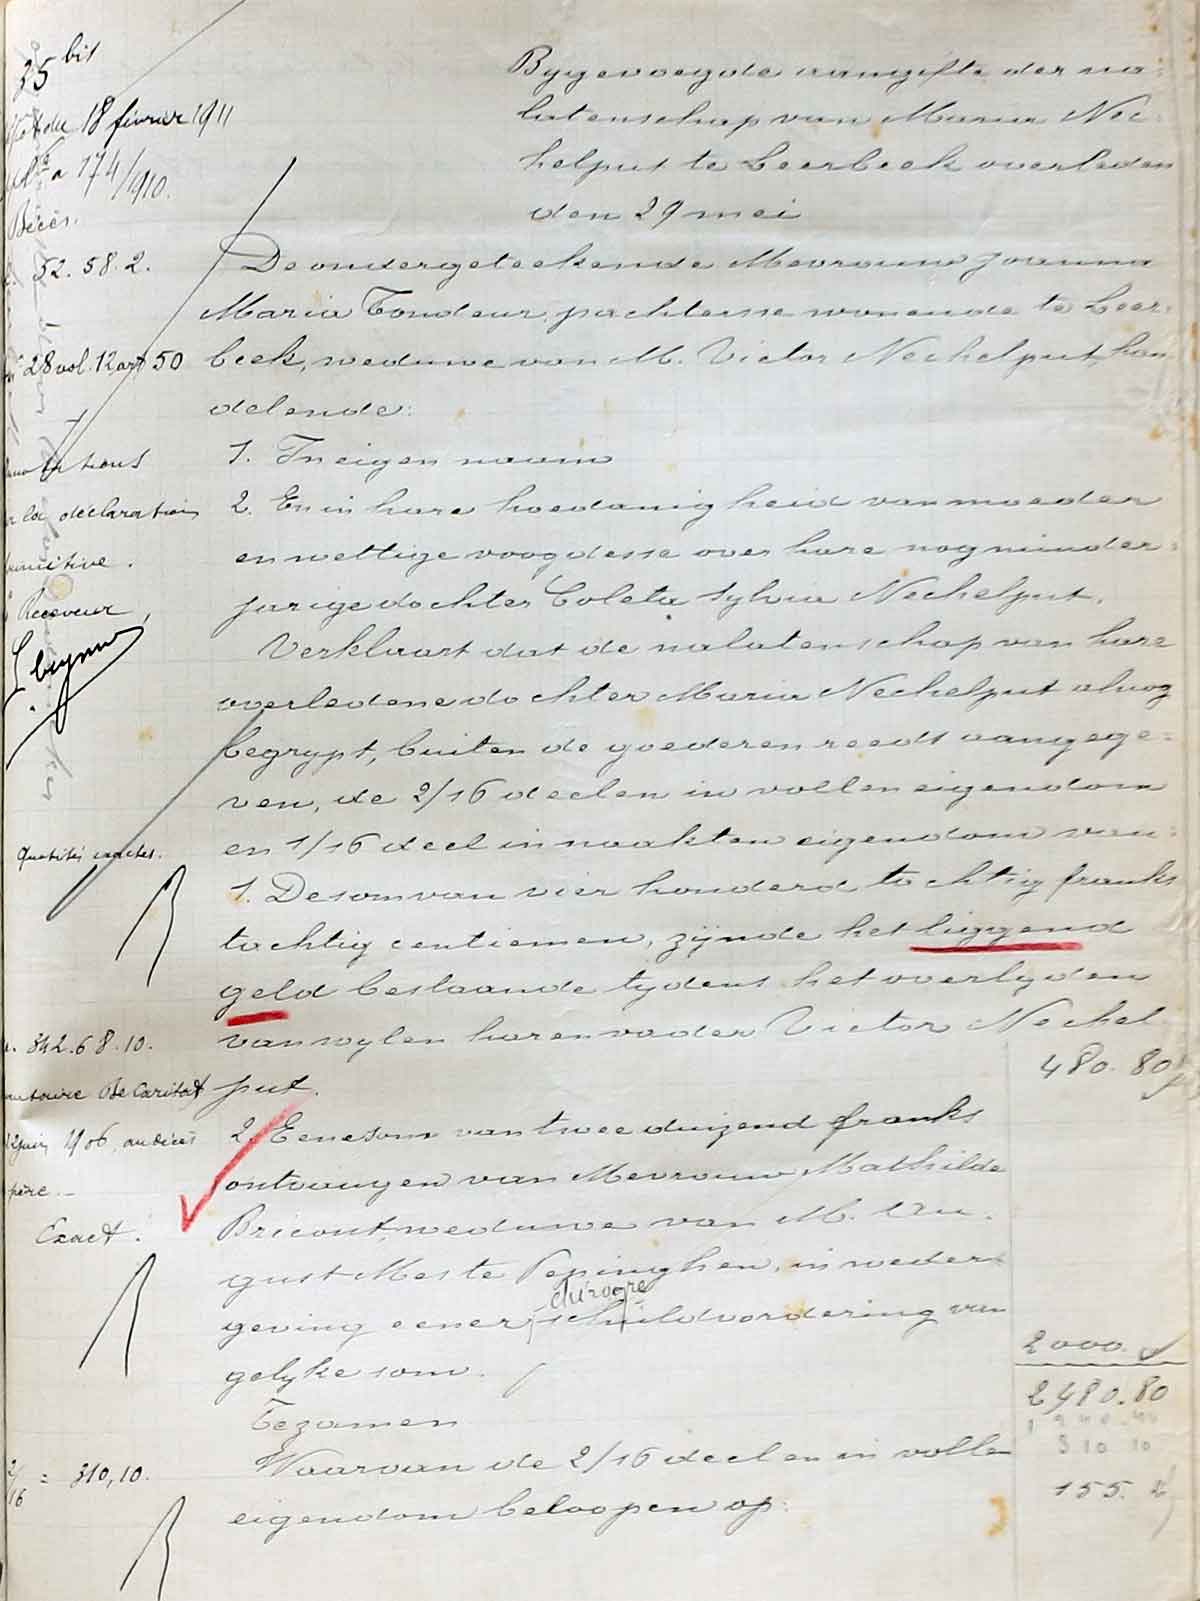 35 bis
du 18 février 1911
174/1910.
Décès.
52. 58. 2.
28 vol. 12 art 50
la déclaration
primitive.
Receveur,
Quotités exactes.
342. 6 8. 10.
juin 1906, au décès
père.
Exact.
2/16 = 310,10.
Bygevoegde aangifte der na-
latenschap van Maria Nec-
helput te Leerbeek overleden
den 29 mei
De ondergeteekende Mevrouw Joanna
Maria Tondeur, pachtersse wonende te Leer-
beek, weduwe van M. Victor Nechelput, han
delende:
1. In eigen naam
2. En in hare hoedanigheid van moeder
en wettige voogdesse over hare nog minder-
jarige dochter Coleta Sylvia Nechelput.
Verklaart dat de nalatenschap van hare
overledene dochter Maria Nechelput alnog
begrypt, buiten de goederen reeds aangege-
ven, de 2/16 deelen in vollen eigendom
en 1/16 deel in naakten eigendom van:
1. De som van vier honderd tachtig franks
tachtig centiemen, zijnde het liggend
geld bestaande tydens het overlyden
van wylen haren vader Victor Nechel
put.
480. 80
2. Eene som van twee duizend franks
ontvangen van Mevrouw Mathilde
Bricout, weduwe van M. Au-
gust Mes te Pepinghen, in weder-
geving eener schuldvordering van
gelyke som.
2000.
Tezamen
2480.80
310 10
155.
Waarvan de 2/16 deelen in volle
eigendom beloopen op: